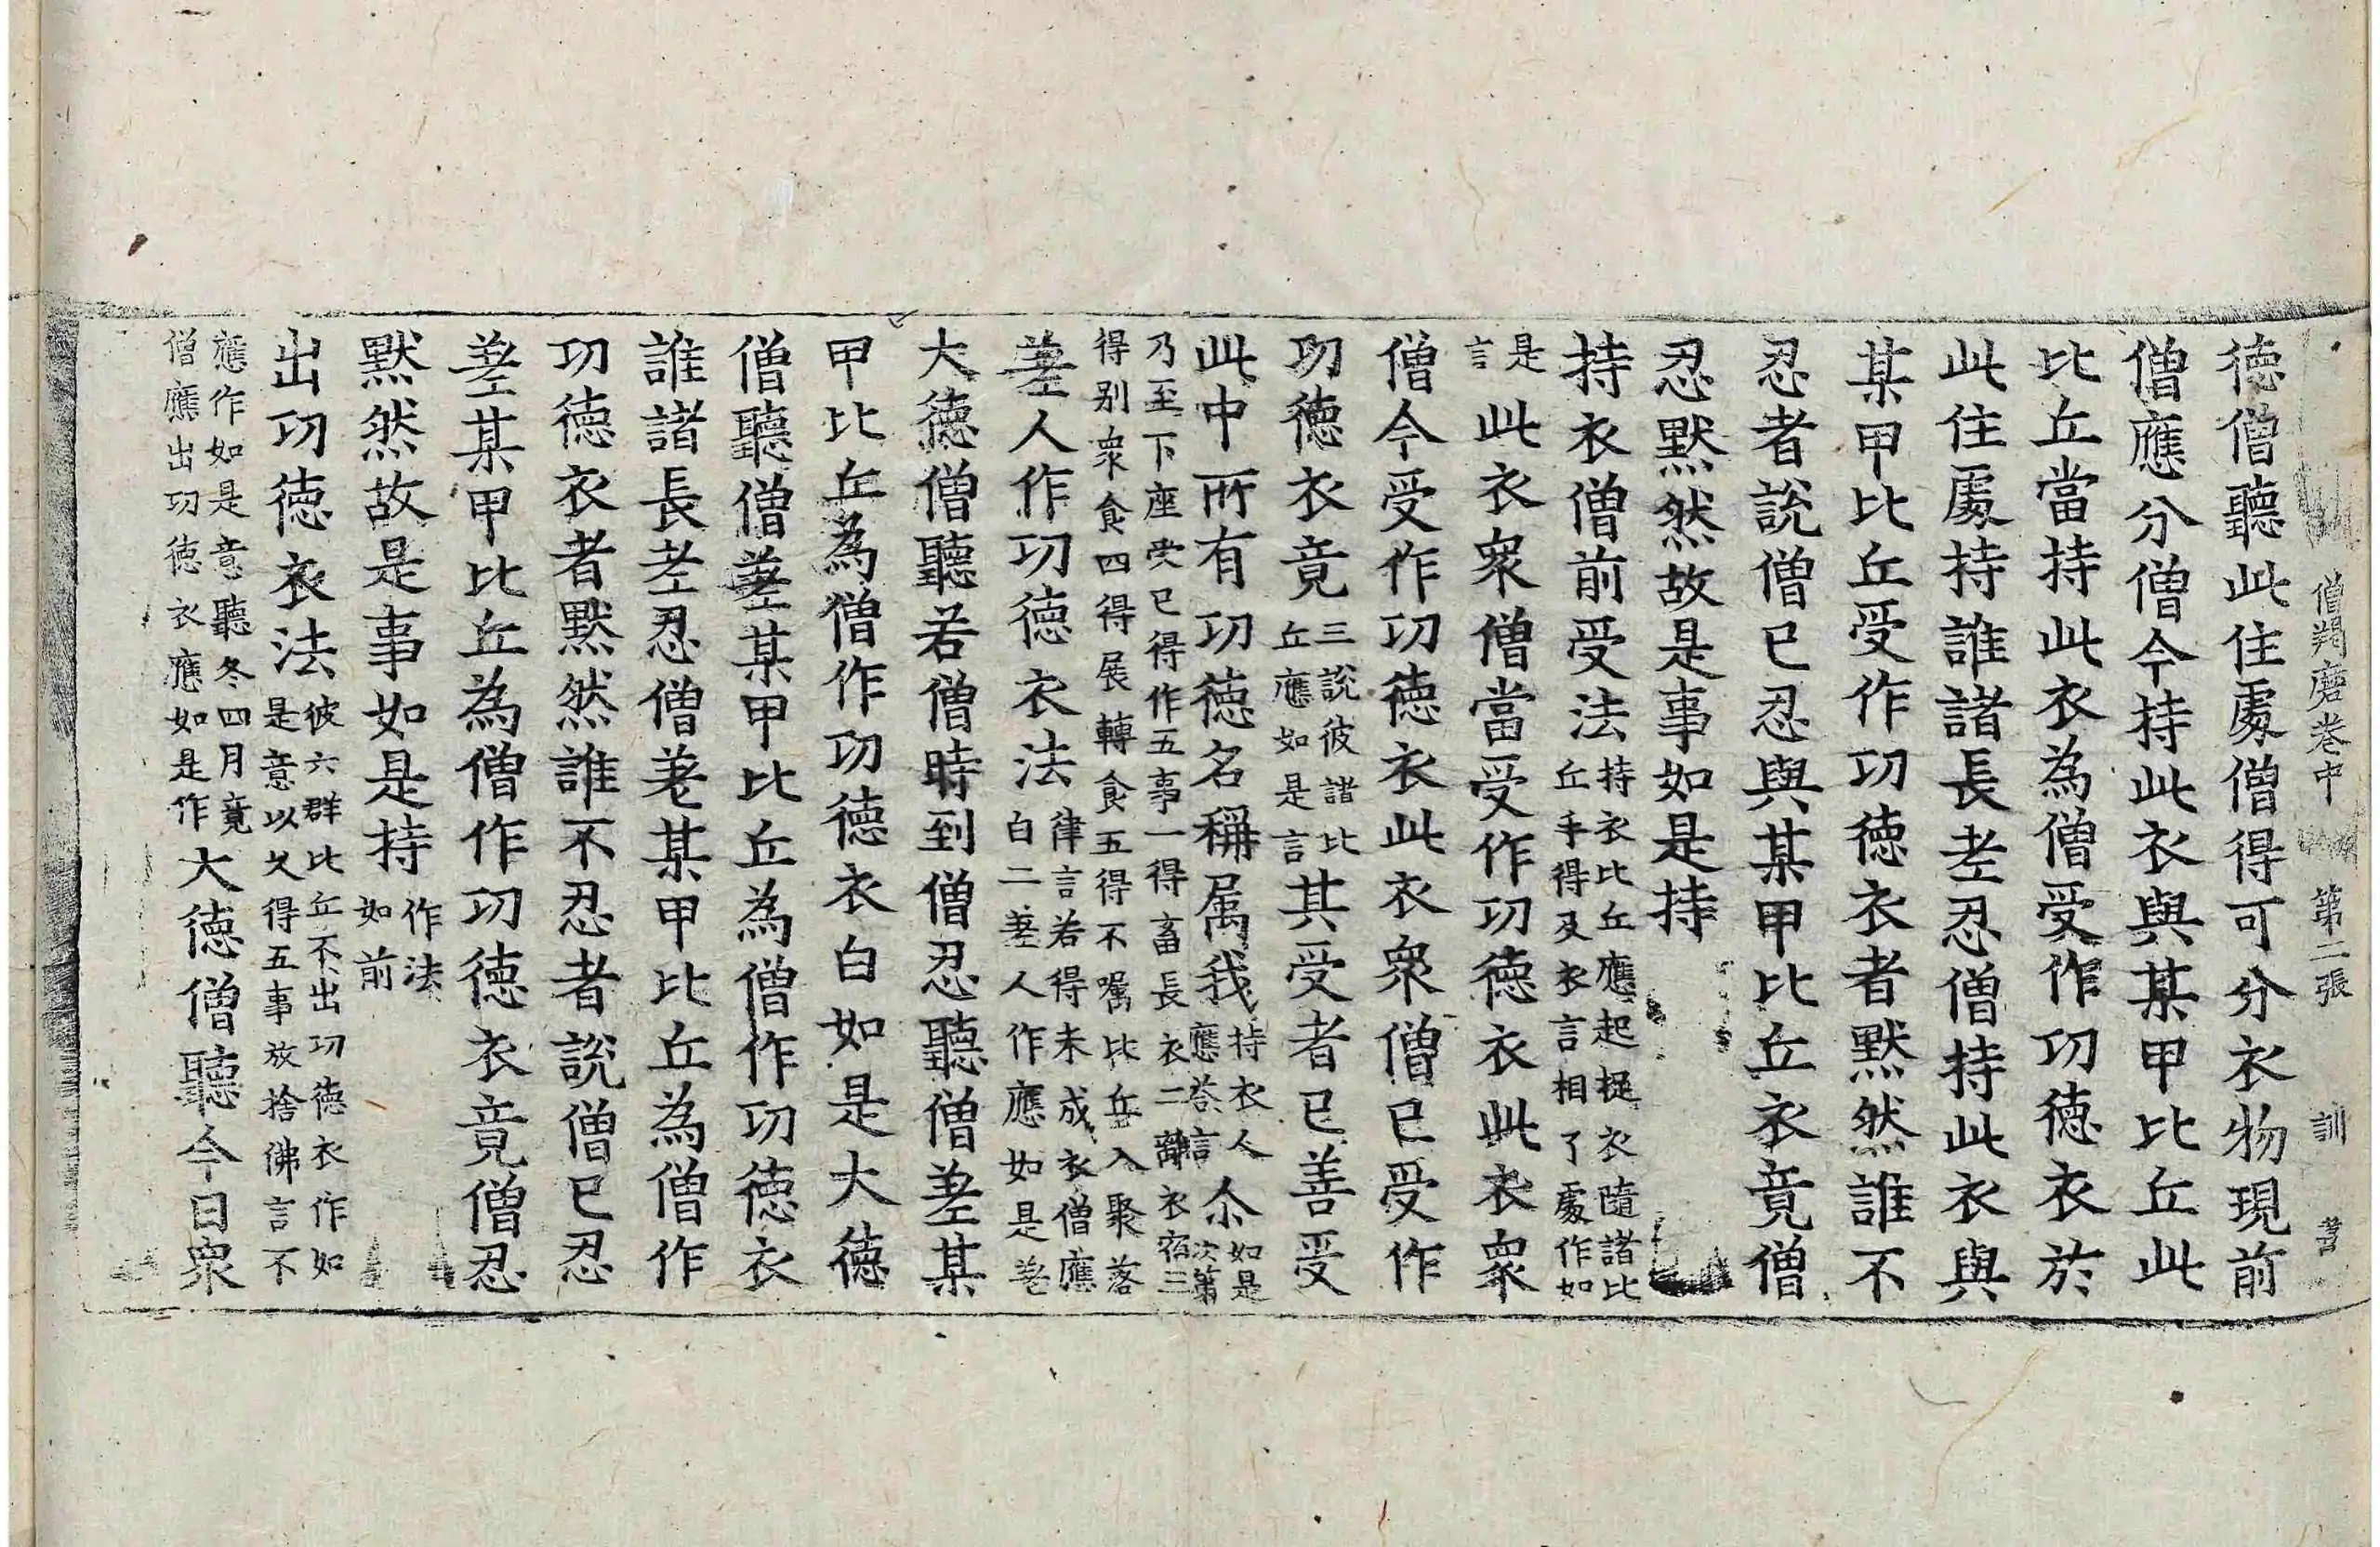 僧羯磨卷中 第二張 訓
德僧聽此住處僧得可分衣物現前
僧應分僧今持此衣與某甲比丘此
比丘當持此衣為僧受作功德衣於
此住處持誰諸長老忍僧持此衣與
某甲比丘受作功德衣者默然誰不
忍者說僧已忍與某甲比丘衣竟僧
忍默然故是事如是持
持衣僧前受法持衣比丘應起捉衣隨諸比
丘手得及衣言相了處作如
是
言此衣眾僧當受作功德衣此衣眾
僧今受作功德衣此衣眾僧已受作
功德衣竟三說彼諸比
丘應如是言其受者已善受
此中所有功德名稱屬我持衣人
應荅言尒如是
次第
乃至下座受已得作五事一得畜長衣二離衣宿三
得別眾食四得展轉食五得不囑比丘入聚落
差人作功德衣法律言若得未成衣僧應
白二差人作應如是差
大德僧聽若僧時到僧忍聽僧差某
甲比丘為僧作功德衣白如是大德
僧聽僧差某甲比丘為僧作功德衣
誰諸長老忍僧差某甲比丘為僧作
功德衣者默然誰不忍者說僧已忍
差某甲比丘為僧作功德衣竟僧忍
默然故是事如是持作法
如前
出功德衣法彼六群比丘不出功德衣作如
是意以久得五事放捨佛言不
應作如是意聽冬四月竟
僧應出功德衣應如是作大德僧聽今日眾